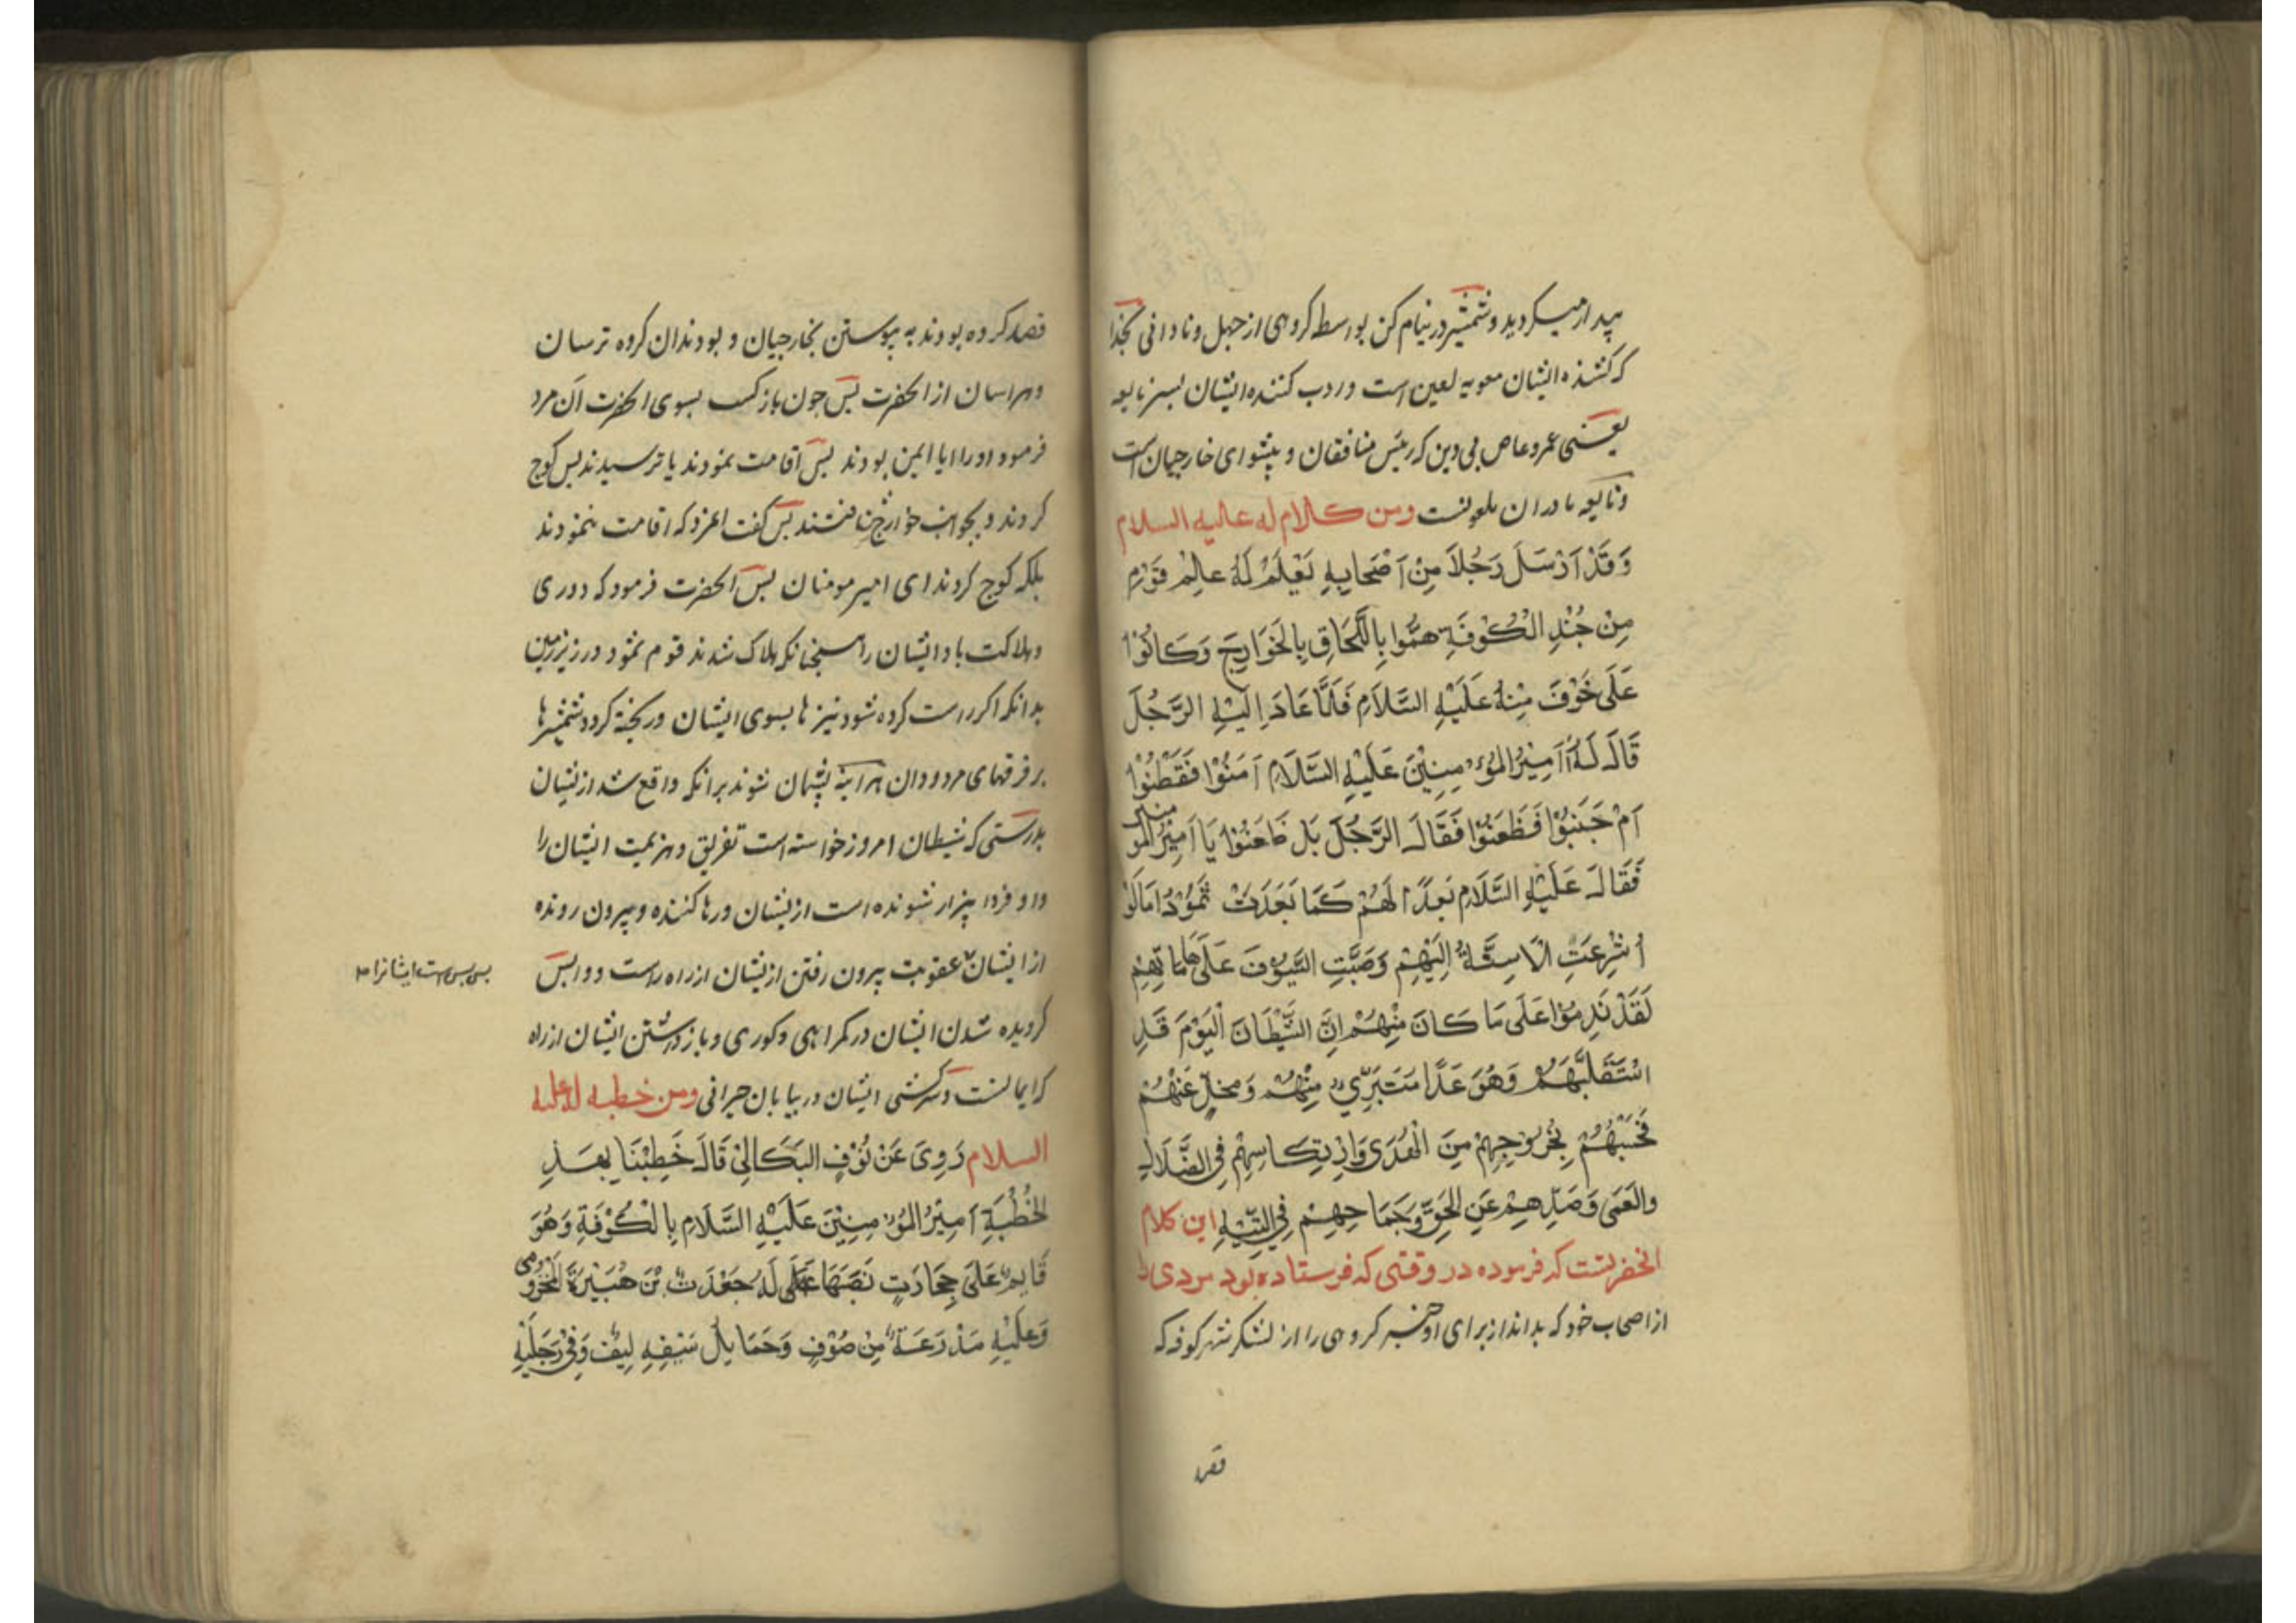 پیدار میکردید و شمشیر در نیام کن بواسطه کروهی از جهل و نادانی بخدا
که کشنده ایشان معویه لعین است و ردب کننده ایشان بسر نابغه
یعنی عمرو عاص بی دین که رئیس منافقان و پیشوای خارجیان است
و نابغه مادر ان ملعونست ومن كلام له عليه السلام
وَقَدْ اَرْسَلَ رَجُلاً مِنْ اَصْحَابِهِ يَعْلَمْ لَهُ عَالِمْ قَوْمٍ
مِنْ جُنْدِ الْكُوْفَةِ هَمُّوا بِاللَّحَاقِ بِالْخَوَارِجَ وَكَانُوْا
عَلَى خَوْفَ مِنْهُ عَلَيْهِ السَّلَامِ فَلَمَّا عَادَ اِلَيْهِ الرَّجُلَ
قَالَ لَهُ اَمِيْرُ المُؤْمِنِيْنَ عَلَيْهِ السَّلَامِ اَمَنُوْا فَقَطَنُوْا
اَمْ جَنَبُوْا فَظَعَنُوْا فَقَالَ الرَّجُلَ بَل ظَعَنُوْا يَا اَمِيْرَ المُومنين
فَقَالَ عَلَيْهِ السَّلَامِ بَعِدًا لَهُمْ كَمَا بَعَدَتْ ثَمُوْدُ اَمَا لَوْ
اُشْرِعَتِ الْاَسِنَّةُ اِلَيْهِمْ وَصَبَّتِ السَّيُوْفَ عَلَى هَامَاتِهِمْ
لَقَدْ نَدِمُوْا عَلَى مَا كَانَ مِنْهُمْ اِنَّ الشَّيْطَانَ الْيَوْمَ قَدِ
اسْتَقَلَّهُمْ وَهُوَ غَدًا مُتَبَرِّيٌ مِنْهُمْ وَمُخِلٍّ عَنْهُمْ
فَحَسْبُهُمْ بِخُرُوْجِهِمْ مِنَ الْهُدَى وَارْتِكَاسِهِمْ فِي الضَّلَالِ
والْعَمَى وَصَدِّهِمْ عَنِ الْحَقِّ وَجَمَاحِهِمْ فِي التِّيْهِ این کلام
انحضرتست که فرموده در وقتی که فرستاده بود مردی را
از اصحاب خود که بداند از برای او خبر کروهی را از لشکر شهر کوفه که
قصد
قصد کرده بودند به پیوستن بخارجیان و بودند ان کروه ترسان
و هراسان از انحضرت پس جون باز کشت بسوی انحضرت آن مرد
فرمود او را ایا ایمن بودند پس اقامت نمودند یا ترسیدند پس کوج
کردند و بجوانب خوارج شتافتند پس کفت انمرد که اقامت ننمودند
بلکه کوج کردند ای امیر مومنان پس انحضرت فرمود که دوری
و هلاکت باد ایشان را همچنانکه هلاک شدند قوم ثمود در زیر زمین
بدانکه اکر راست کرده شود نیزها بسوی ایشان و ریخته کردد شمشیرها
بر فرقهای مردودان هراینه پشیمان شوند برانکه واقع شد ازیشان
بدرستی که شیطان امروز خواسته است تفریق و هزیمت ایشان را
و او فردا بیزار شونده است ازیشان و رها کننده و بیرون رونده
از ایشان عقوبت بیرون رفتن ازیشان از راه راست و واپس
بس بس است ایشانرا
کردیده شدن ایشان در کمراهی و کوری و باز داشتن ایشان از راه
که ایمانست و سرکشی ایشان در بیابان حیرانی ومن خطبه له عليه
السلام رَوِىَ عَنْ نُوْفٍ البَكَالِيْ قَالَ خَطِبْنَا بِهَذِهِ
الْخُطْبَةِ اَمِيْرُ المُؤْمِنِيْنَ عَلَيْهِ السَّلَامِ بِالْكُوْفَةِ وَهُوَ
قَايِمٌ عَلَى حِجَارَتٍ نَصَبَهَا لَهُ جَعْدَتُ بْنَ هُبَيْرَةَ الْمَخْزُومِي
وَعَلَيْهِ مَدْرَعَةٌ مِنْ صُوْفٍ وَحَمَايِلُ سَيْفِهِ لِيْفٌ وَفِيْ رِجْلَيْهِ